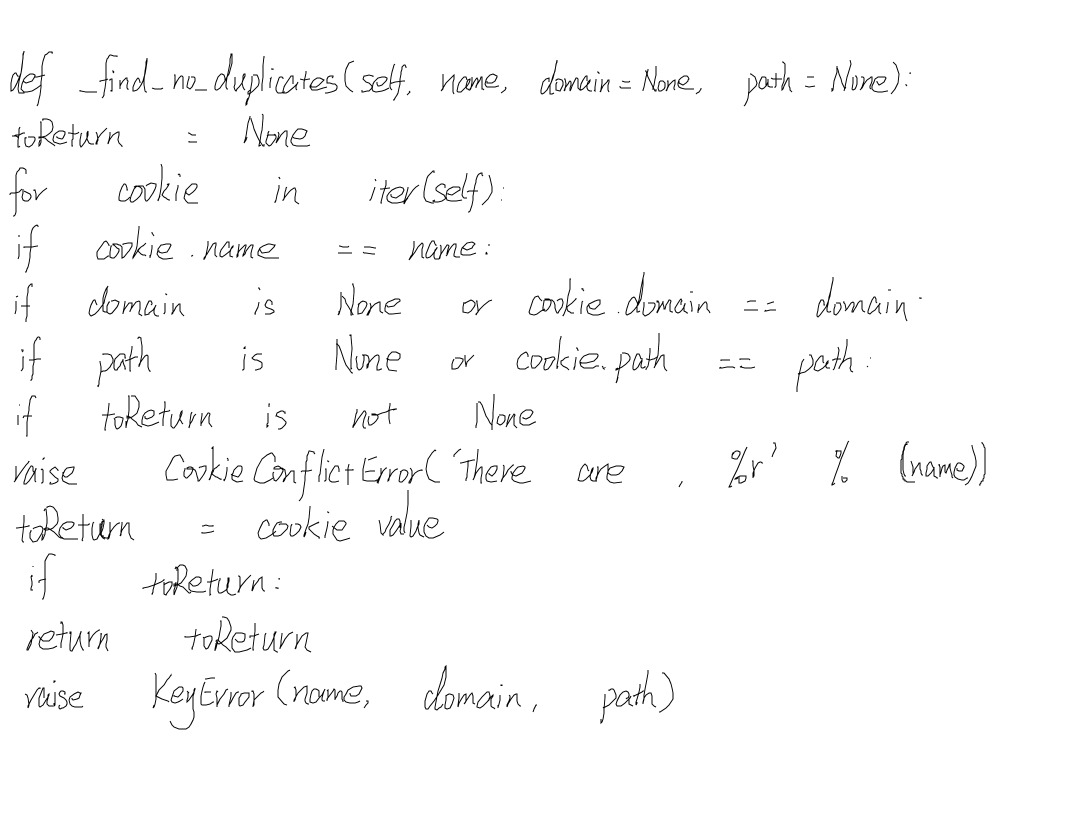 def _find_no_duplicates(self, name, domain=None, path=None):
toReturn = None
for cookie in iter(self):
if cookie.name == name:
if domain is None or cookie.domain == domain:
if path is None or cookie.path == path:
if toReturn is not None
raise CookieConflictError('There are , %r' % (name))
toReturn = cookie value
if toReturn:
return toReturn
raise KeyError(name, domain, path)